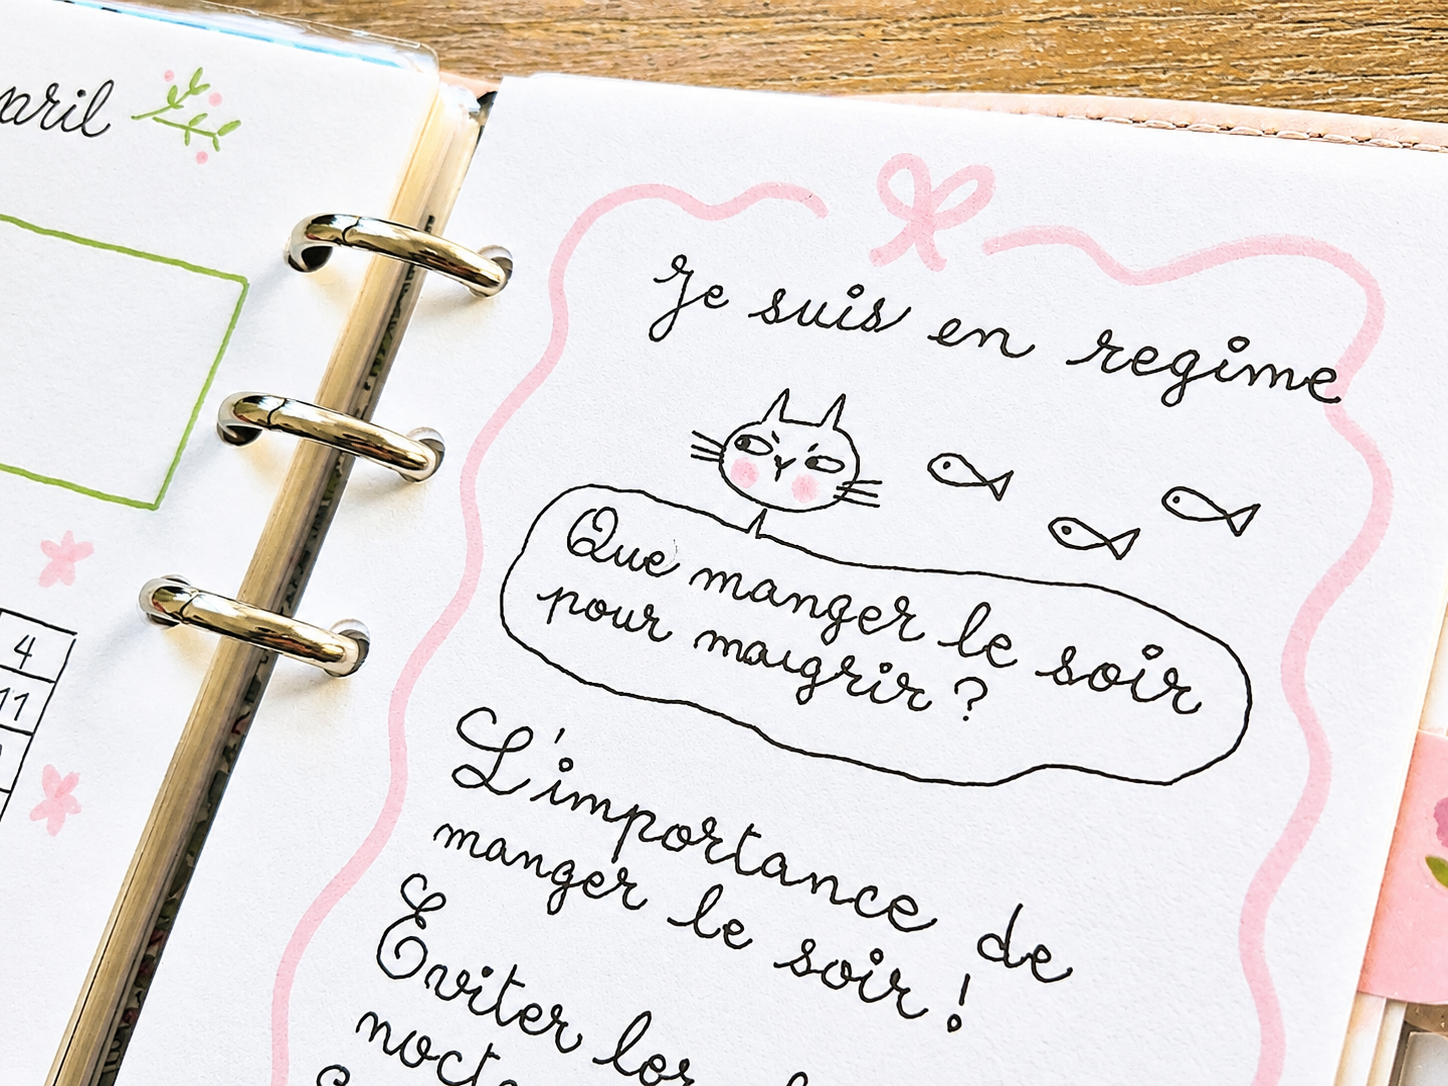 avril
4
11
Je suis en regime
Que manger le soir
pour maigrir ?
L'importance de
manger le soir !
Eviter